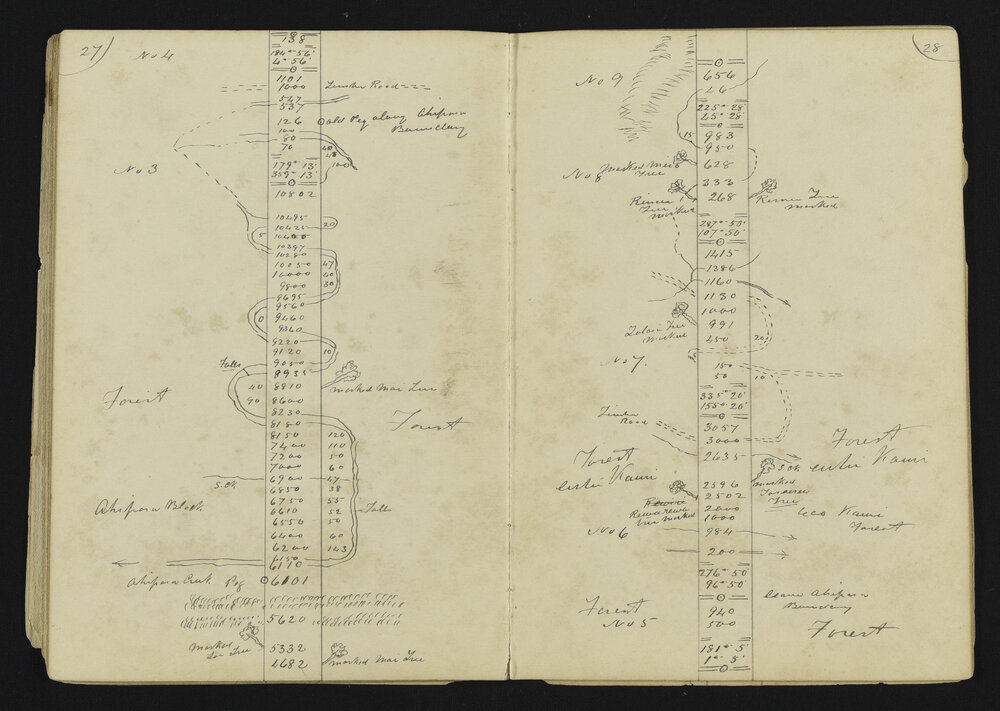 27
No 4
138
184° 56'
4° 56'
1101
1000 Timber Road
547
537
126 old Peg along Ahipara
Boundary
100
80
70 40
48
100
179° 13'
359° 13'
No 3
10802
10495
10425 20
5 10400
10397
10280
10050 47
10000 40
9800 30
9695
9560
0 9460
9360
9220
9120 10
9050
Falls 8935
40 8910 marked Mai Tree
Forest 90 8600
8230
8180 Forest
8150 120
7400 110
7200 50
7000 60
6900 47
S.Ck 6850 38
6750 55
Ahipara Block 6610 52 Falls
6550 50
6400 60
6200 143
6150
6110
Ahipara Creek Peg 6101
5620
marked
Tree 5332
4682 marked Mai Tree
28
No 9
656
46
225° 28'
45° 28'
15 983
950
No 8 marked Mai 628
Tree
333
Rimu 268 Rimu Tree
Tree marked
marked
287° 50'
107° 50'
1415
1386
1160
1130
1000
Tree 991
marked 450 20
No 7.
150
50 10
335° 20'
155° 20'
Timber
Road 3057
3000 Forest
Forest 2635
Kauri S.Ck Kauri
2596 marked
2502
Rewarewa 2000 Tree
Tree marked 1000 Kauri
Forest
No 6 984
200
276° 50'
96° 50'
leave Ahipara
Boundary
Forest 940
No 5 500
Forest
181° 5'
1° 5'